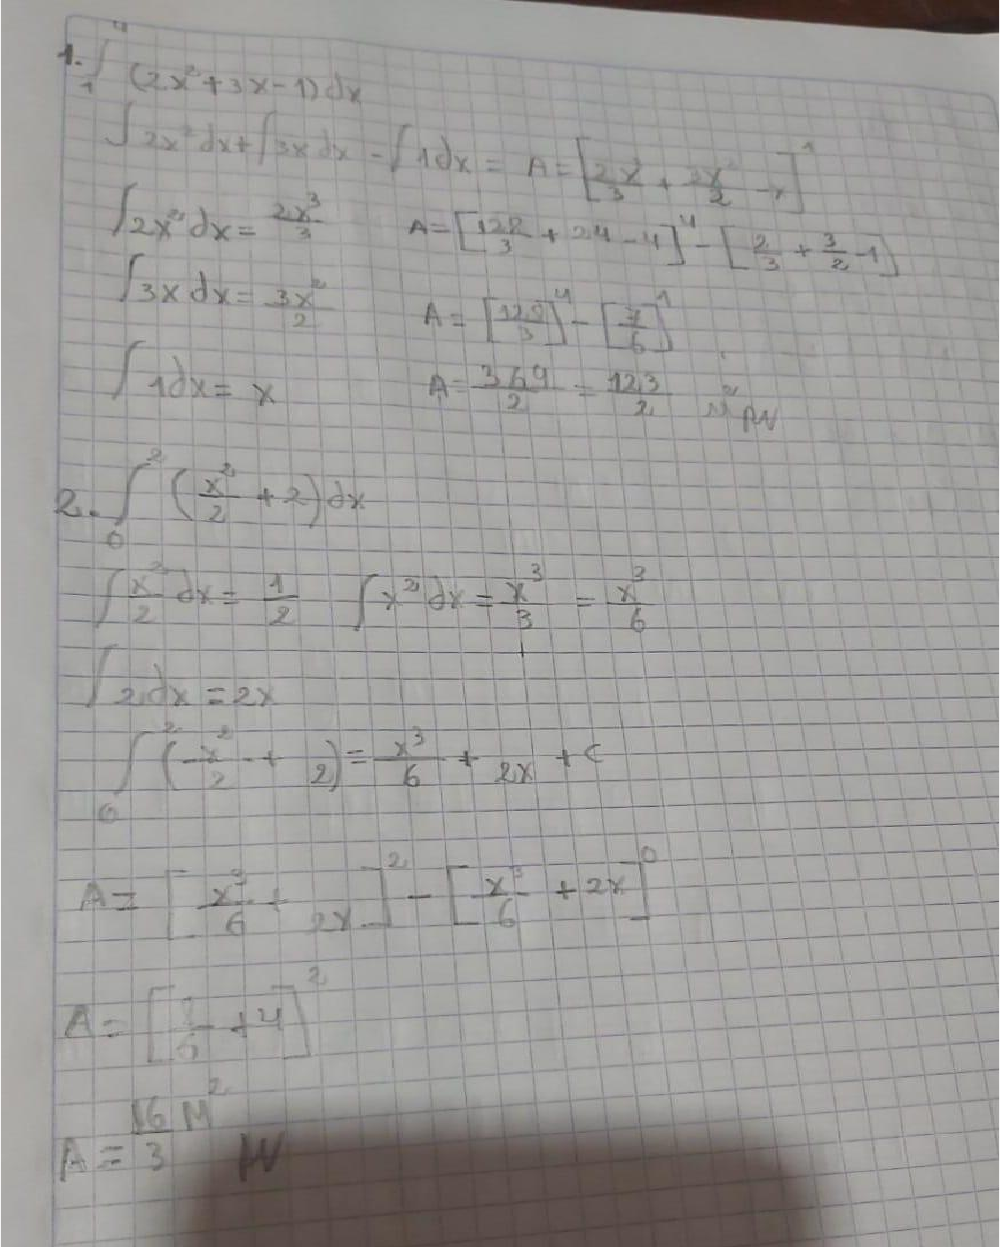 1. ∫₁⁴ (2x²+3x-1)dx
∫2x²dx+∫3xdx-∫1dx= A=[2x³/3 + 3x²/2 - x]¹
∫2x²dx= 2x³/3 A=[128/3 + 24-4]⁴-[2/3 + 3/2-1]
∫3xdx= 3x²/2 A=[128/3]⁴-[7/6]¹
∫1dx= x A= 369/2 = 123/2
2. ∫₀² (x²/2 +2)dx
∫x²/2 dx= 1/2 ∫x²dx= x³/3 = x³/6
∫2dx=2x
∫₀² (x²/2 + 2)= x³/6 + 2x + c
A= [x³/6 + 2x]²-[x³/6 +2x]⁰
A= [8/6 +4]²
A= 16/3 M²